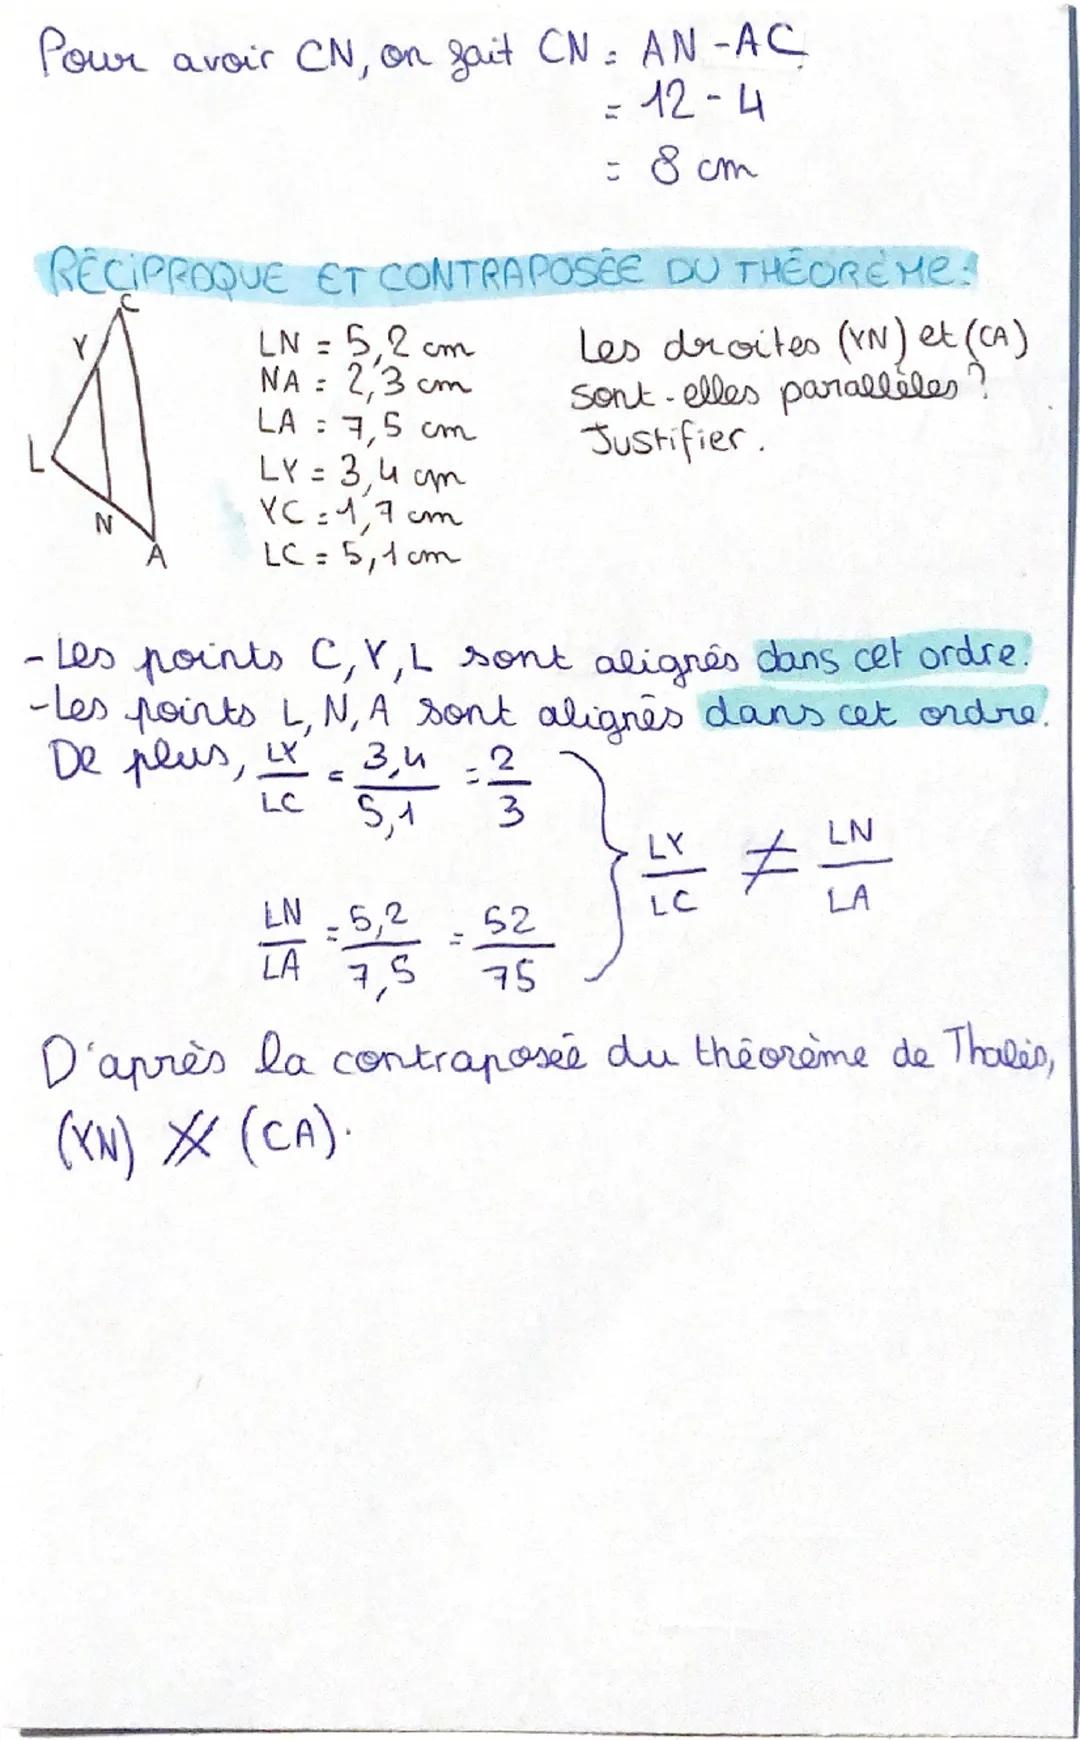 Pour avoir CN, on fait CN = AN - AC
= 12 - 4
= 8 cm
RÉCIPROQUE ET CONTRAPOSÉE DU THÉORÈME:
C
Y
L
N
A
LN = 5,2 cm
NA = 2,3 cm
LA = 7,5 cm
LY = 3,4 cm
YC = 1,7 cm
LC = 5,1 cm
Les droites (YN) et (CA)
sont-elles parallèles ?
Justifier.
- Les points C, Y, L sont alignés dans cet ordre.
- Les points L, N, A sont alignés dans cet ordre.
De plus, LY/LC = 3,4/5,1 = 2/3
LN/LA = 5,2/7,5 = 52/75
LY/LC ≠ LN/LA
D'après la contraposée du théorème de Thalès,
(YN) ∦ (CA).